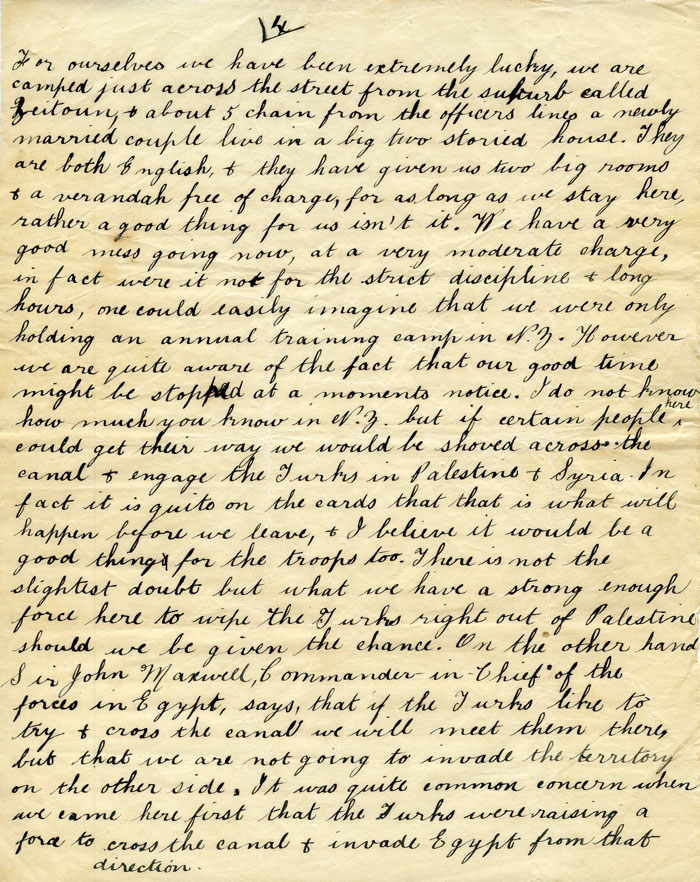 4
For ourselves we have been extremely lucky, we are
camped just across the street from the suburb called
Zeitoun, & about 5 chain from the officers lines a newly
married couple live in a big two storied house. They
are both English, & they have given us two big rooms
& a verandah free of charge, for as long as we stay here,
rather a good thing for us isn't it. We have a very
good mess going now, at a very moderate charge,
in fact were it not for the strict discipline & long
hours, one could easily imagine that we were only
holding an annual training camp in N.Z. However
we are quite aware of the fact that our good time
might be stopped at a moments notice. I do not know
how much you know in N.Z. but if certain people here
could get their way we would be shoved across the
canal & engage the Turks in Palestine & Syria. In
fact it is quite on the cards that that is what will
happen before we leave, & I believe it would be a
good thing for the troops too. There is not the
slightest doubt but what we have a strong enough
force here to wipe the Turks right out of Palestine
should we be given the chance. On the other hand
Sir John Maxwell, Commander-in-Chief of the
forces in Egypt, says, that if the Turks like to
try & cross the canal we will meet them there,
but that we are not going to invade the territory
on the other side. It was quite common concern when
we came here first that the Turks were raising a
force to cross the canal & invade Egypt from that
direction.